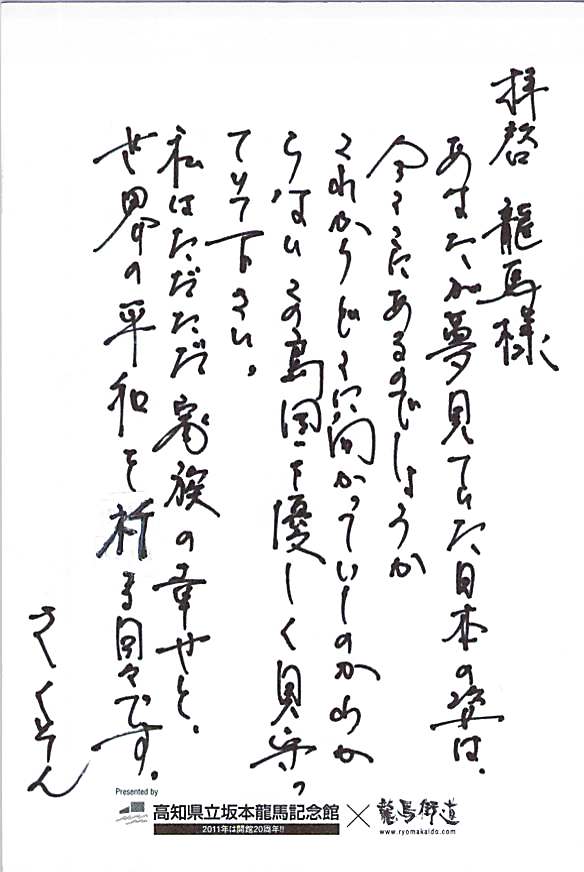 拝啓 龍馬様
あなたが夢見ていた日本の姿は、
今そこにあるのでしょうか
これからどこに向かっていくのかわか
らないこの島国を優しく見守っ
てて下さい。
私はただただ家族の幸せと、
世界の平和を祈る日々です。
Presented by
高知県立坂本龍馬記念館 × 龍馬街道
2011年は開館20周年!!
www.ryomakaido.com